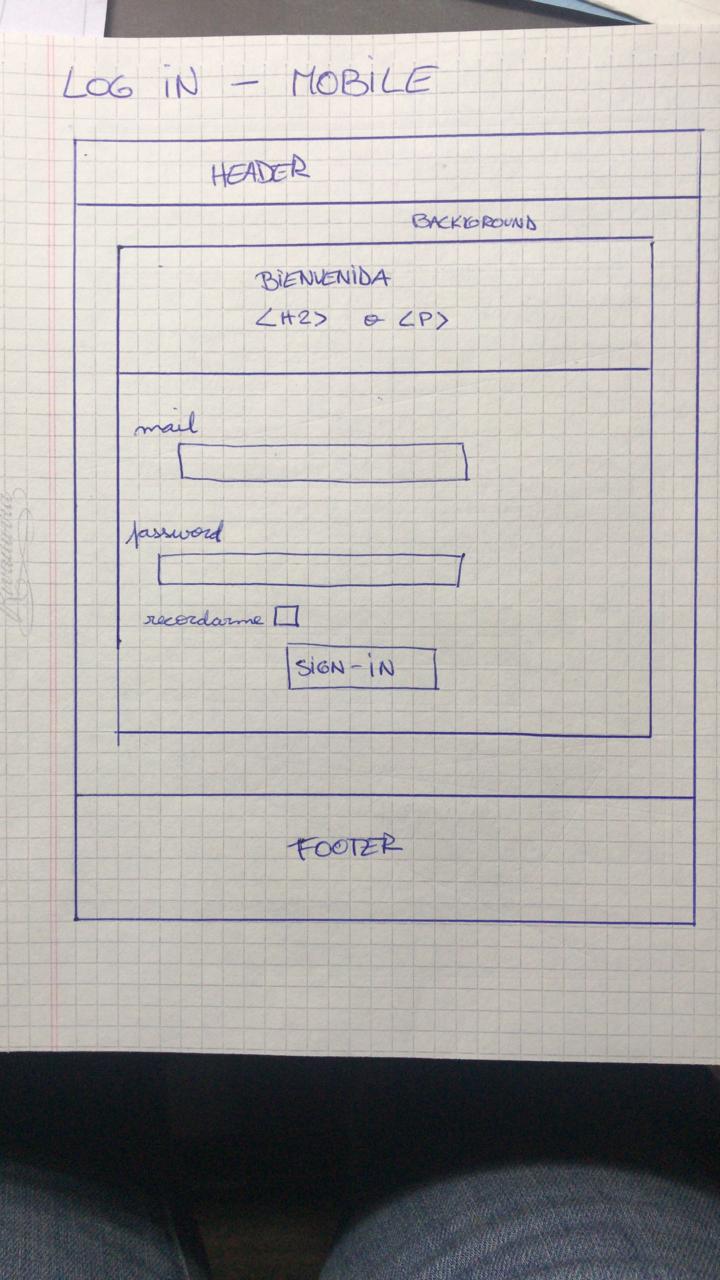 LOG iN - MOBILE
HEADER
BACKGROUND
BiENVENiDA
<H2> o <P>
mail
password
recordarme
SiGN-iN
FOOTER
Rivadavia